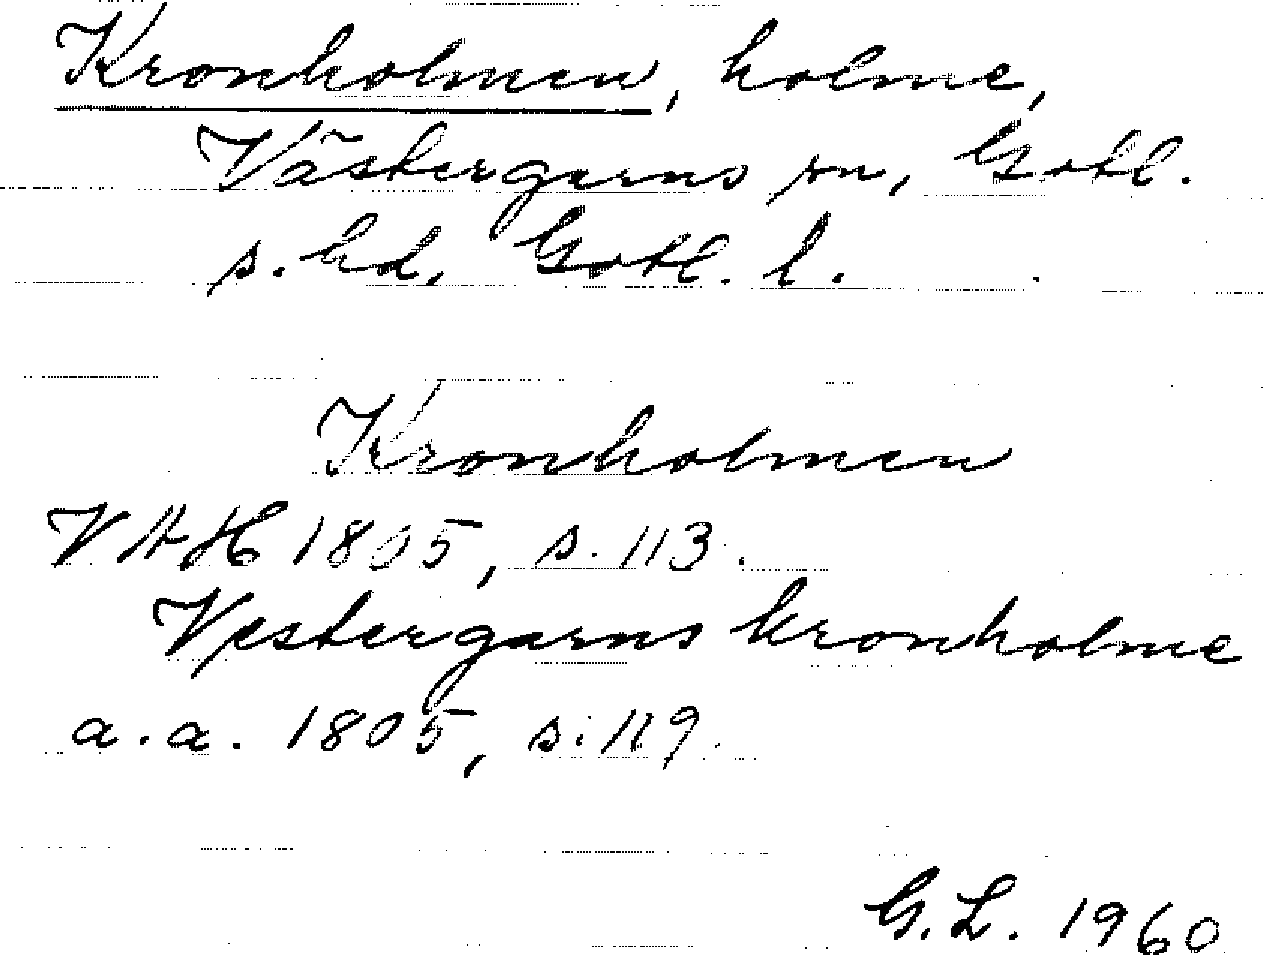 Kronholmen, holme,
Västergarns sn, Gotl.
s. hd, Gotl. l.
Kronholmen
VAH 1805, s. 113.
Vestergarns kronholme
a.a. 1805, s. 119.
G.L. 1960